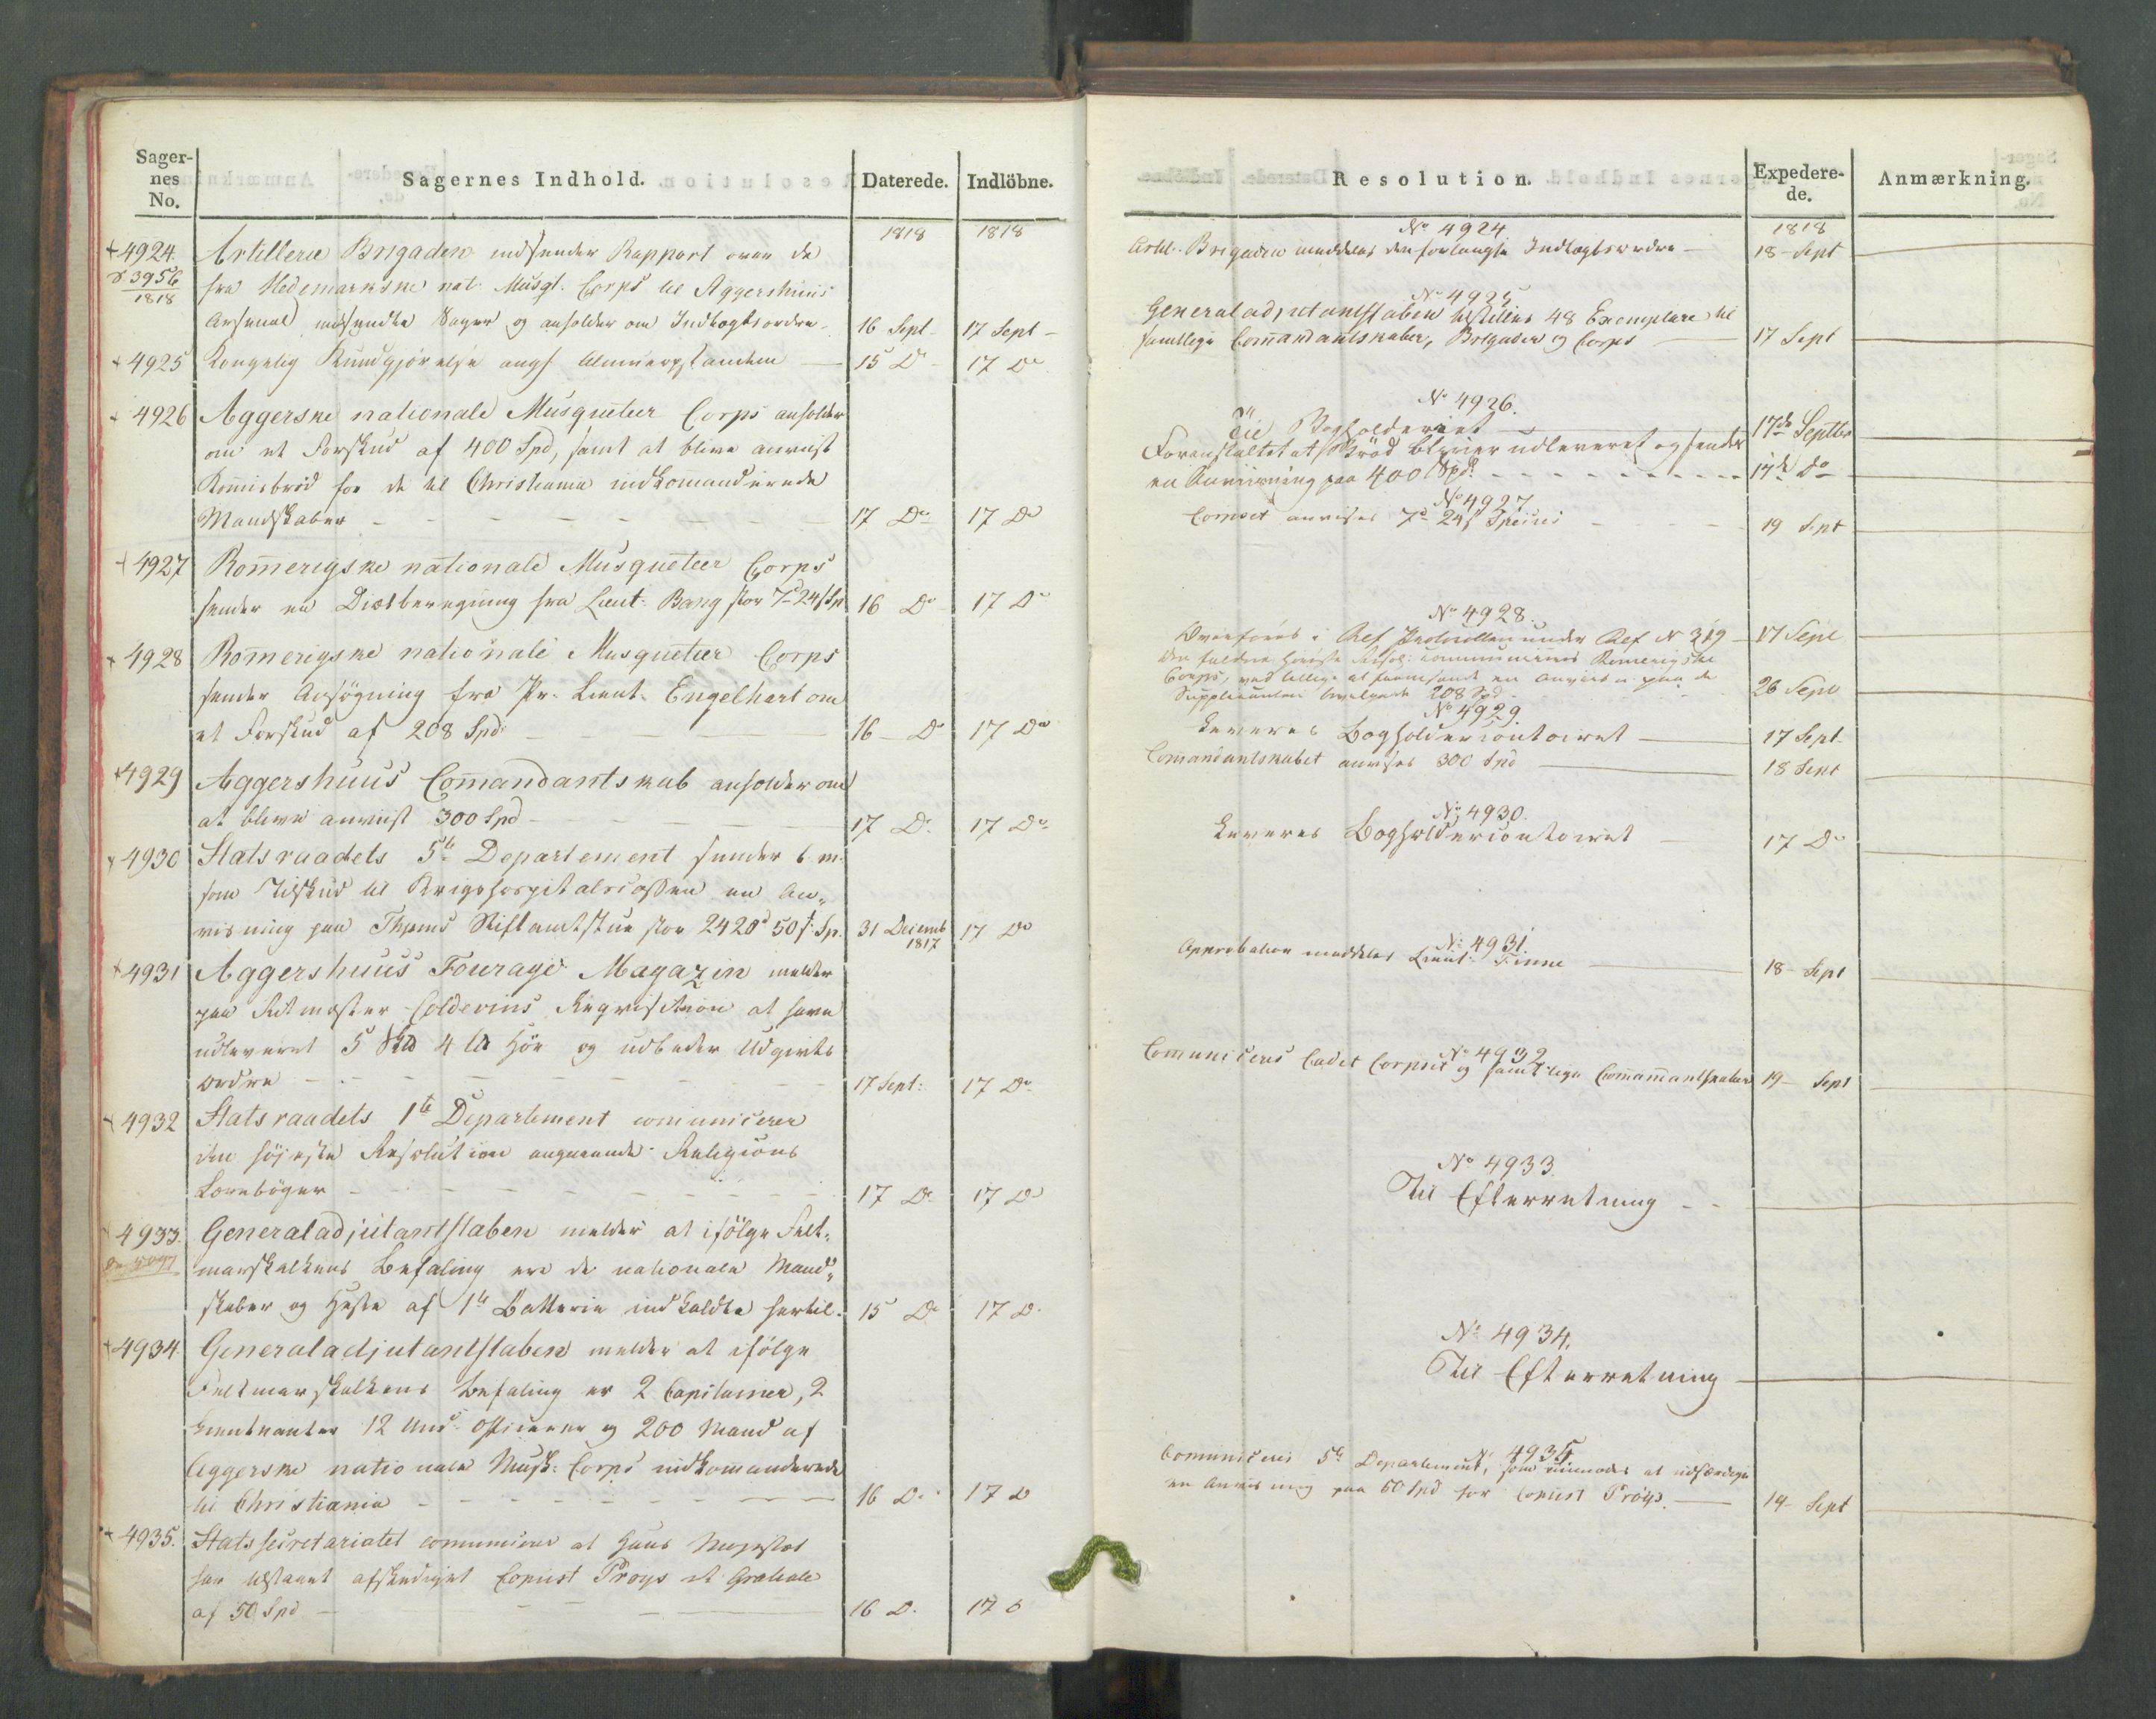 Sager-
nes
No.
Sagernes Indhold.
Daterede.
Indlöbne.
1818
1818
4924 Artillerie Brigaden indsender Rapport over de
3956
1818
fra Hedemarkske nat. Musqt. Corps til Aggershuus
Arsenal indsendte Sager og anholder om Indtægtsordre 16 Sept 17 Sept
4925 Kongelig Kundgjörelse angf 15 Do 17 Do
4926 Aggerske nationale Musqueteer Corps anholder
om et Forskud af 400 Spd, samt at blive anviist
Komisbröd for de til Christiania indkomanderede
Mandskaber 17 Do 17 Do
4927 Romerigske nationale Musqueteer Corps
sender en Diætberegning fra Lieut. Bang stor 7d 24 s Sp 16 Do 17 Do
4928 Romerigske nationale Musqueteer Corps
sender Ansögning fra Pr. Lieut. Engelhart om
et Forskud af 208 Spd 16 Do 17 Do
4929 Aggershuus Comandantskab anholder om
at blive anviist 300 Spd 17 Do 17 Do
4930 Statsraadets 5te Departement sender
som Tilskud til Krigshospitalscassen en An-
viisning paa Thjems Stiftamtstue stor 2420d 50 s Sp. 31 Decemb 17 Do
1817
4931 Aggershuus Fourage Magazin melder
paa Ritmester Coldevins Reqvisition at have
udleveret 5 4 Höe og udbeder Udgivts
ordre 17 Sept: 17 Do
4932 Statsraadets 1te Departement comunicerer
den höjeste Resolution angaaende Religions
Læreböger 17 Do 17 Do
4933. Generaladjutantstaben melder at ifölge Felt-
marskalkens Befaling ere de nationale Mand-
skaber og Heste af 1te Batterie indkaldte hertil. 15 Do 17 D.
4934. Generaladjutantstaben melder at ifölge
Feltmarskalkens Befaling er 2 Capitainer, 2
Lieutnanter 12 Und. Officerer og 200 Mand af
Aggerske nationale Musk: Corps indkomanderede
til Christiania 16 D. 17 D
4935. Statssecretariatet comunicerer at Hans Majestæt
har tilstaaet afskediget Copiist Pröys et Gratiale
af 50 Spd 16 D. 17 D
Resolution.
Expedere-
de.
Anmærkning.
1818
No 4924
Artil. Brigaden meddeles den forlangte Indtægtsordre 18 Sept
No 4925
Generaladjutantstaben tilstilles 48 Exemplare til
samtlige Comandantskaber, Brigader og Corps 17 Sept
No 4926.
Til Bogholderiet 17de Septbr
Foranstaltet at Bröd bliver udleveret og sender
en Anviisning paa 400 Spd. 17de Do
No 4927
Corpset anvises 7d 24 s Specie 19 Sept
No 4928.
Overföres i Ref Protocollen under Ref No 319 17 Sept
den faldne höieste Resol: communiceres Romerigske
Corps, ved tillige at fremsende en Anviisn: paa de
Supplicanten bevilgede 208 Spd 26 Sept
No 4929.
Leveres Bogholdercontoiret 17 Sept
Comandantskabet anvises 300 Spd 18 Sept
No 4930.
Leveres Bogholdercontoiret 17 Do
No 4931.
Approbation meddeles Lieut: Finne 18 Sept
No 4932
Comuniceres Cadet Corpset og samtlige Commantskaber 19 Sept
No 4933.
Til Efterretning
No 4934.
Til Efterretning
4935
Comuniceres 5te Departement, som anmodes at udfærdige
en Anviisning paa 50 Spd for Copiist Pröys. 19 Sept